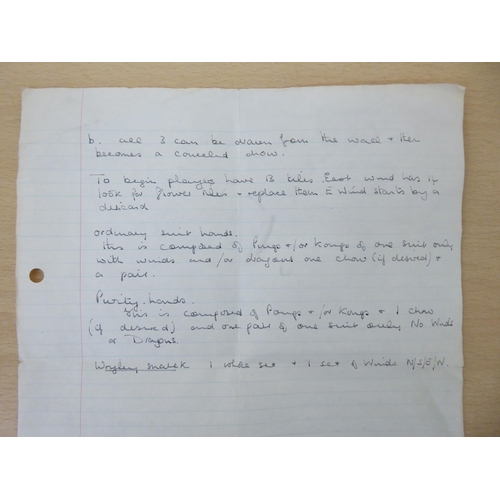 b. all 3 can be drawn from the wall + then
becomes a concealed chow.
To begin players have 13 tiles. East wind has 14
look for flower tiles + replace them E Wind starts by a
discard
ordinary suit hands.
This is composed of Pungs +/or Kongs of one suit only
with winds and/or dragons one chow (if desired) +
a pair.
Purity hands.
This is composed of Pungs +/or Kongs + 1 chow
(if desired) and one pair of one suit only. No Winds
or Dragons.
1 whole set + 1 set of Winds N/S/E/W.